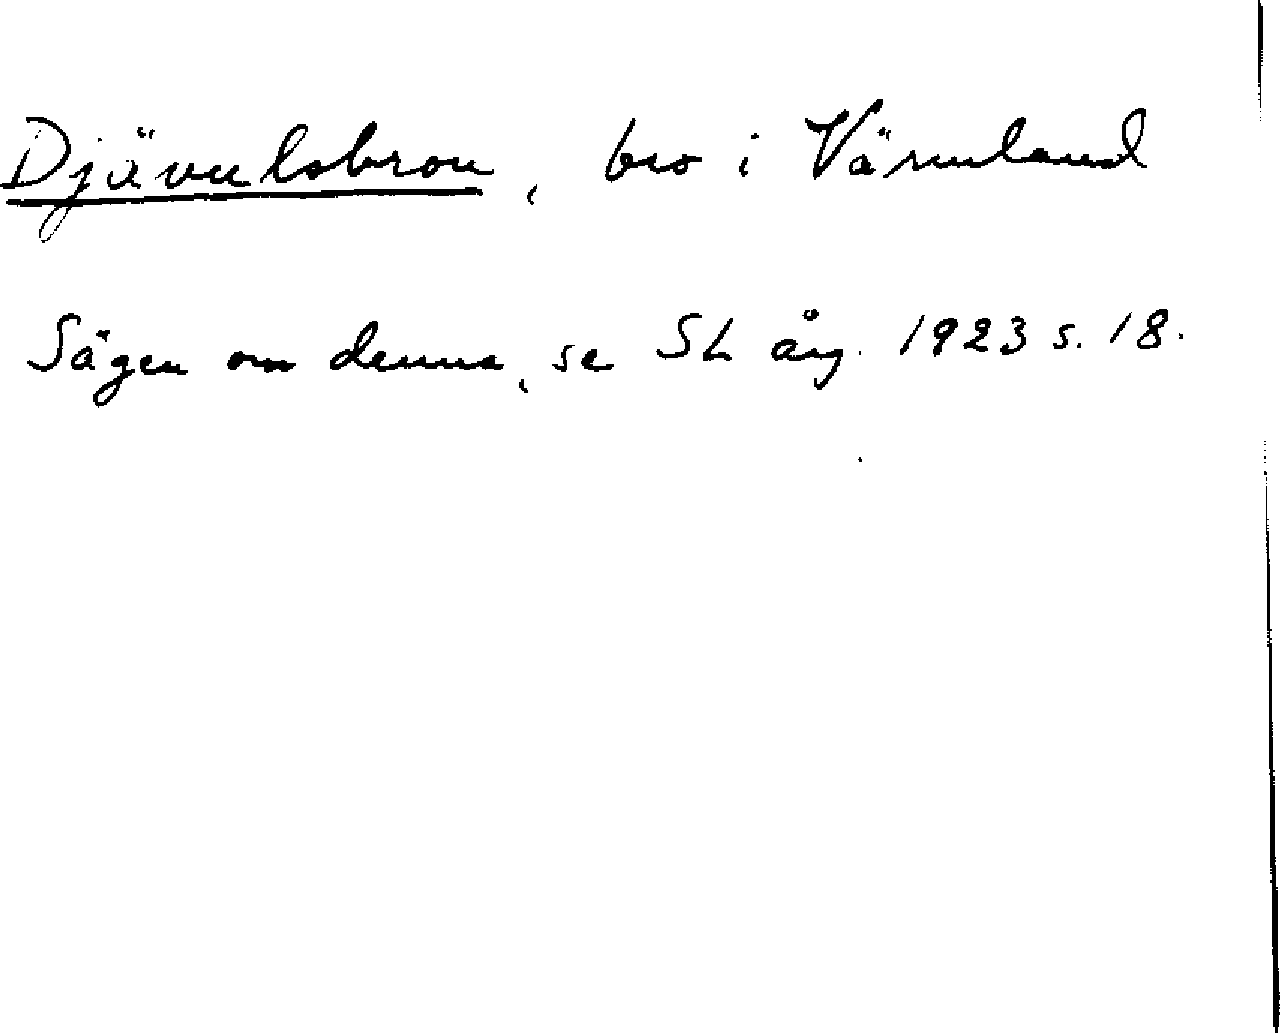 Djävulsbron, bro i Värmland
Sägen om denna, se SL årg. 1923 s. 18.